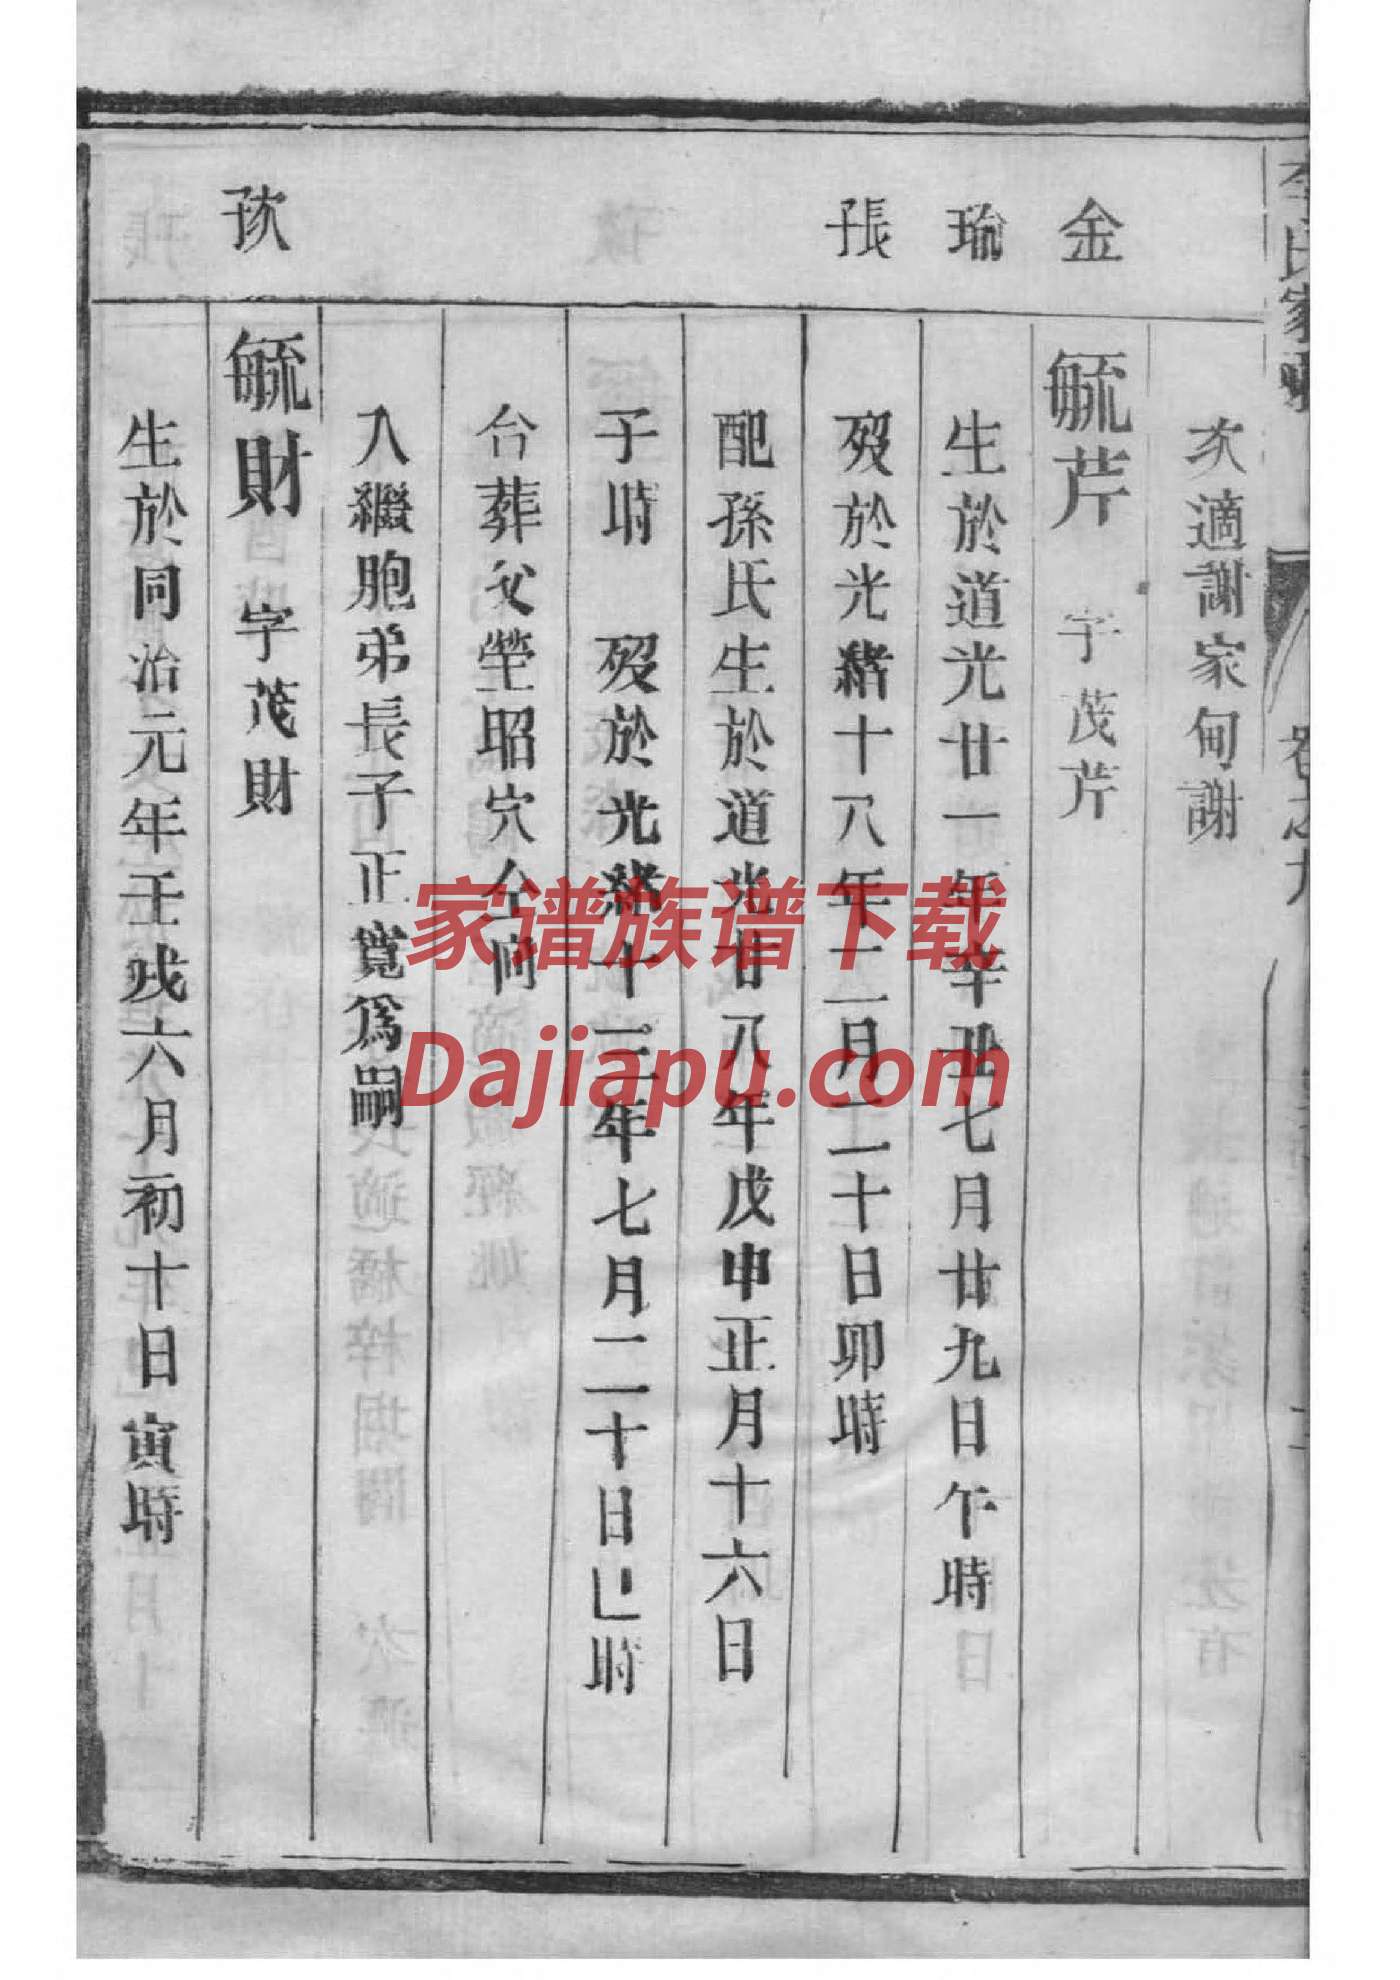 李氏家乘
卷之九
次適謝家甸謝
金瑜張
毓芹 字茂芹
生於道光廿一年辛丑七月廿九日午時
歿於光緒十八年二月二十日卯時
配孫氏生於道光廿八年戊申正月十六日
子時 歿於光緒十三年七月二十日巳時
合葬父塋昭穴仝向
入繼胞弟長子正寬爲嗣
毓財 字茂財
生於同治元年壬戌六月初十日寅時
家谱族谱下载
Dajiapu.com